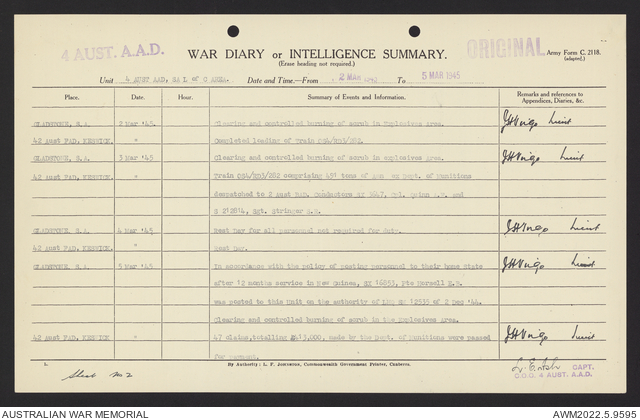 4 AUST. A.A.D.
WAR DIARY or INTELLIGENCE SUMMARY.
ORIGINAL
Army Form C. 2118.
(adapted.)
(Erase heading not required.)
Unit 4 AUST AAD, SA L of C AREA. Date and Time.—From 2 MAR 1945 To 5 MAR 1945
Place. Date. Hour. Summary of Events and Information. Remarks and references to Appendices, Diaries, &c.
GLADSTONE, S.A. 2 Mar '45. Clearing and controlled burning of scrub in Explosives Area. Lieut
42 Aust FAD, KESWICK. " Completed loading of Train
GLADSTONE, S.A. 3 Mar '45 Clearing and controlled burning of scrub in explosives Area. Lieut
42 Aust FAD, KESWICK. " Train comprising 491 tons of Amn ex Dept. of Munitions
despatched to 2 Aust BAD. Conductors and
Sgt. Stringer
GLADSTONE, S.A. 4 Mar '45 Rest day for all personnel not required for duty. Lieut
42 Aust FAD, KESWICK. " Rest day.
GLADSTONE, S.A. 5 Mar '45. In accordance with the policy of posting personnel to their home State Lieut
after 12 months service in New Guinea, SX 16853, Pte Horsell
was posted to this Unit on the authority of 12535 of 2 Dec '44.
Clearing and controlled burning of scrub in the Explosives Area.
42 Aust FAD, KESWICK " 47 claims, totalling £413,000, made by the Dept. of Munitions were passed Lieut
for payment.
1.
By Authority: L. F. Johnston, Commonwealth Government Printer, Canberra.
Sheet No 2
CAPT.
4 AUST. A.A.D.
AUSTRALIAN WAR MEMORIAL
AWM2022.5.9595